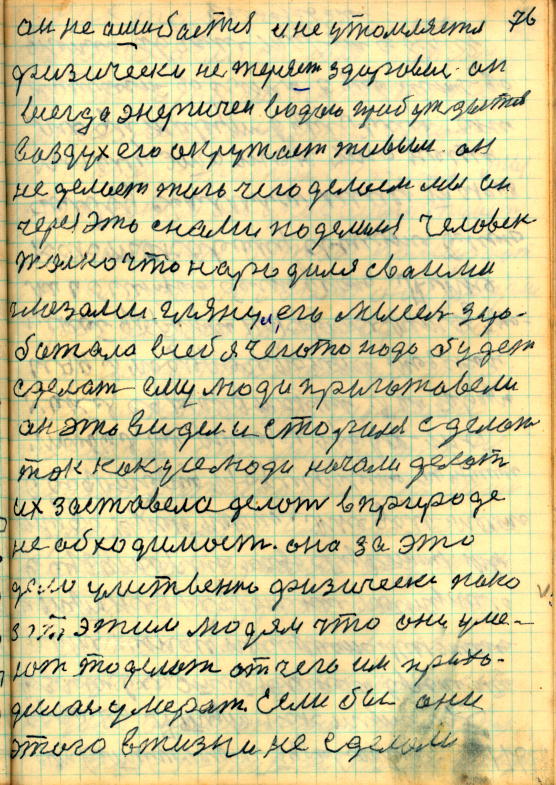 он не ашибается и не утомляется 76
физически не теряет здоровия. он
всегда энергичен водою пробуждается
воздух его окружает живым. он
не делает того чего делаем мы он
через это снами поделился Человек
толко что народился своими
глазами глянул, его мысля зро-
ботала всебя чегото надо будет
сделат ему люди приготовели
он это видел и сторался сделат
так как уселюди начали делат
их заставела делат вприроде
необходимост. она за это
дело умственно физически нако
зала этим людям что они уме-
ют то делат отчего им прихо-
дилас умерат. Если бы они
этого вжизни не сделали